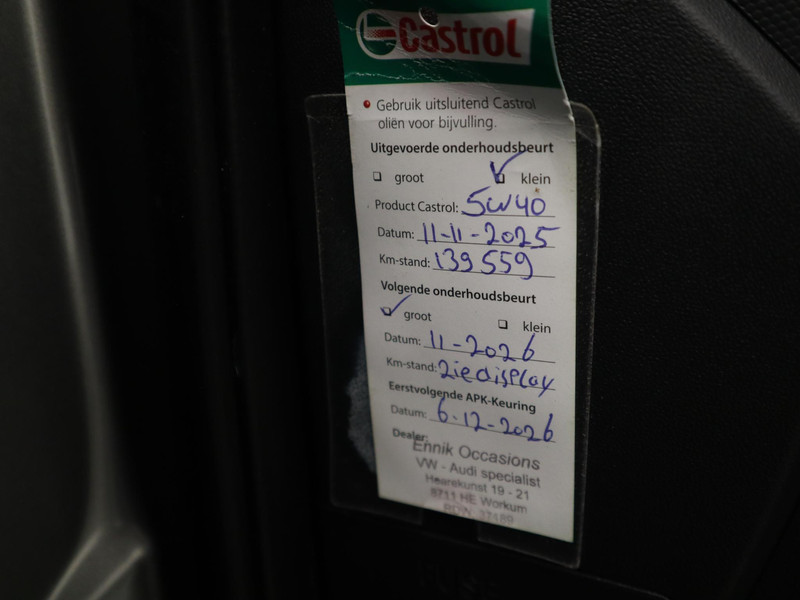 Castrol
Gebruik uitsluitend Castrol
oliën voor bijvulling.
Uitgevoerde onderhoudsbeurt
groot klein
Product Castrol: 5W40
Datum: 11-11-2025
Km-stand: 139559
Volgende onderhoudsbeurt
groot klein
Datum: 11-2026
Km-stand: Zie display
Eerstvolgende APK-Keuring
Datum: 6-12-2026
Dealer:
Ennik Occasions
VW - Audi specialist
Hearekunst 19 - 21
8711 HE Workum
RDW